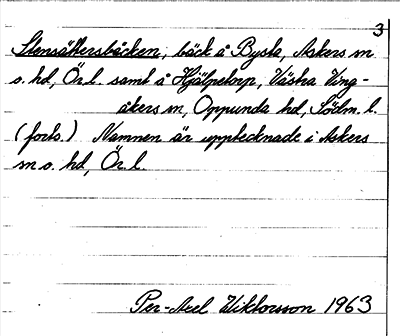 3
Stensåkersbäcken, bäck å Bysta, Askers sn
o. hd, Ör. l. samt å Hjälpetorp, Västra Ving-
åkers sn, Oppunda hd, Södm. l.
(forts.) Namnen är upptecknade i Askers
sn o. hd, Ör. l.
Per-Axel Wiktorsson 1963